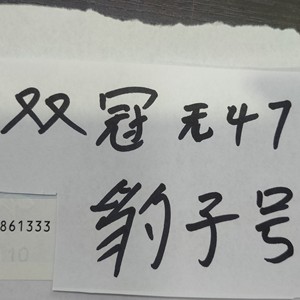 双冠 无47
豹子号
861333
10